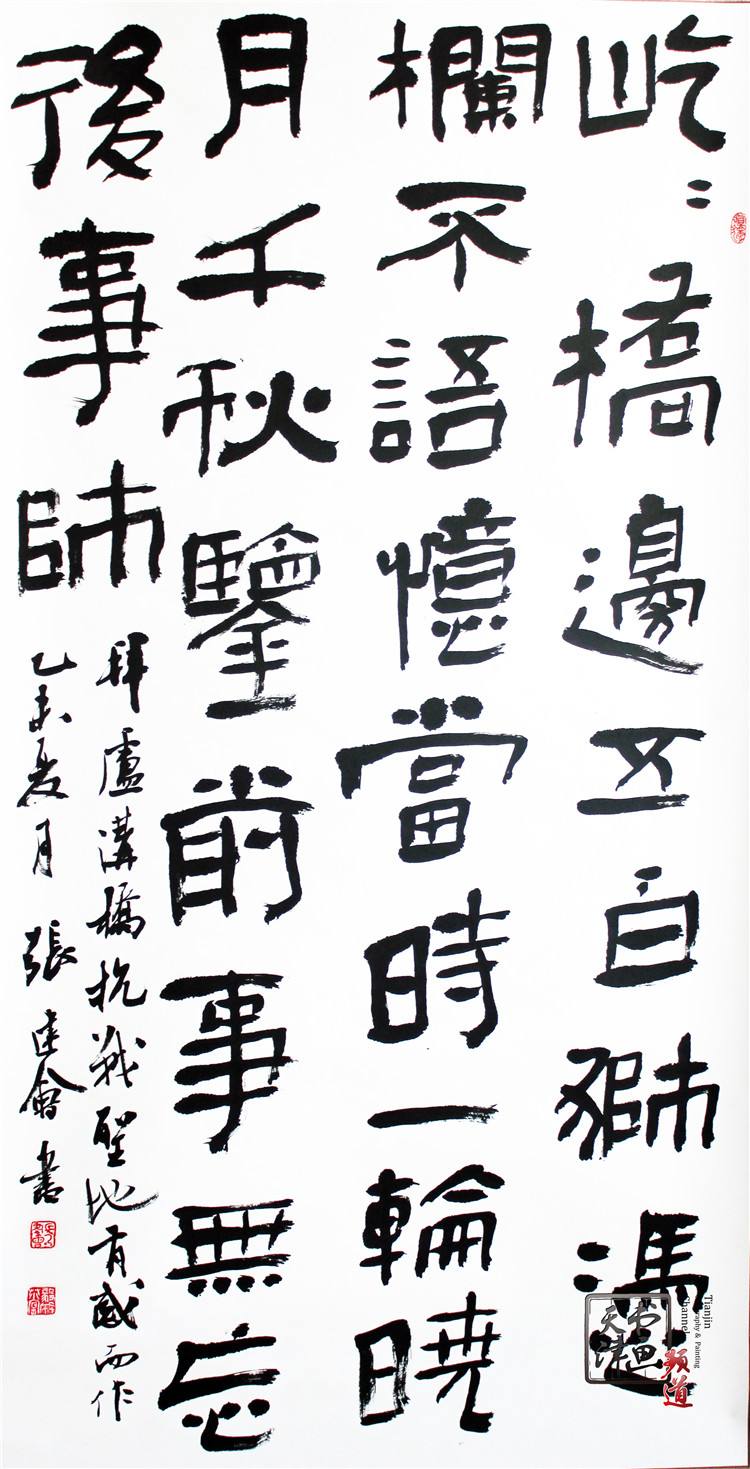 屹〻橋邊五百獅憑
欄不語憶當時一輪曉
月千秋鑒前事無忘
後事師
拜盧溝橋抗戰聖地有感而作
乙未夏月張建會書
天津书画
频道
Tianjin
Channel
& Painting